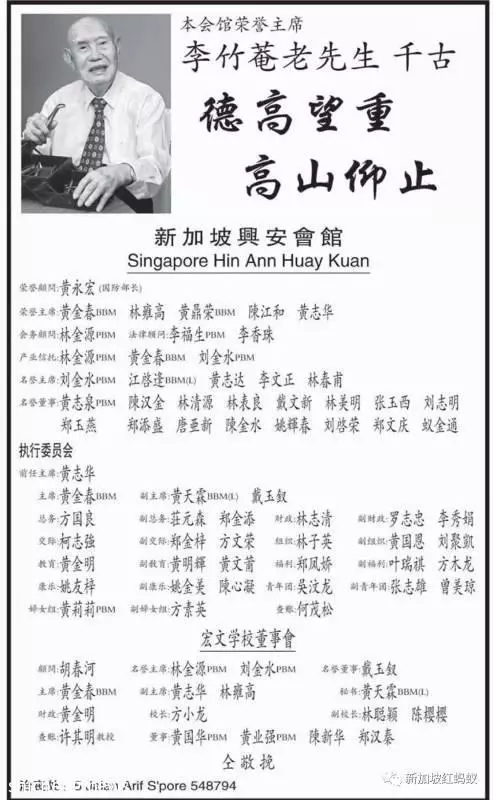 本会馆荣誉主席
李竹菴老先生 千古
德高望重
高山仰止
新加坡興安會館
Singapore Hin Ann Huay Kuan
荣誉顧問:黄永宏(国防部长)
荣誉主席:黄金春BBM 林雍高 黄鼎荣BBM 陳江和 黄志华
会务顧問:林金源PBM 法律顧問:李福生PBM 李香珠
产业信托:林金源PBM 黄金春BBM 刘金水PBM
名誉主席:刘金水PBM 江啓逢BBM(L) 黄志达 李文正 林春甫
名誉董事:黄志泉PBM 陳汉金 林清源 林表良 戴文新 林美明 张玉西 刘志明
郑玉燕 郑添盛 唐亚新 陳金水 姚輝春 刘启荣 郑文庆 蚁金通
执行委员会
前任主席:黄志华
主席:黄金春BBM 副主席:黄天霖BBM(L) 戴玉钗
总务:方国良 副总务:莊元森 郑金添 财政:林志清 副财政:罗志忠 李秀娟
交际:柯志強 副交际:郑金梓 方文荣 组织:林子英 副组织:黄国恩 刘聚凯
教育:黄金明 副教育:黄明輝 黄文莆 福利:郑凤娇 副福利:叶瑞祺 方木龙
康乐:姚友梓 副康乐:姚金美 陳心凝 青年团:吴汶龙 副青年团:张志雄 曾美琼
婦女组:黄莉莉PBM 副婦女组:方素英 查账:何茂松
宏文学校董事會
顧問:胡春河 名誉主席:林金源PBM 刘金水PBM 名誉董事:戴玉钗
主席:黄金春BBM 副主席:黄志华 林雍高 秘书:黄天霖BBM(L)
财政:黄金明 校长:方小龙 副校长:林聪颖 陈樱樱
查账:许其明教授 董事:黄国华PBM 黄业强PBM 陳新华 郑汉秦
仝敬挽
Arif S'pore 548794
新加坡红蚂蚁